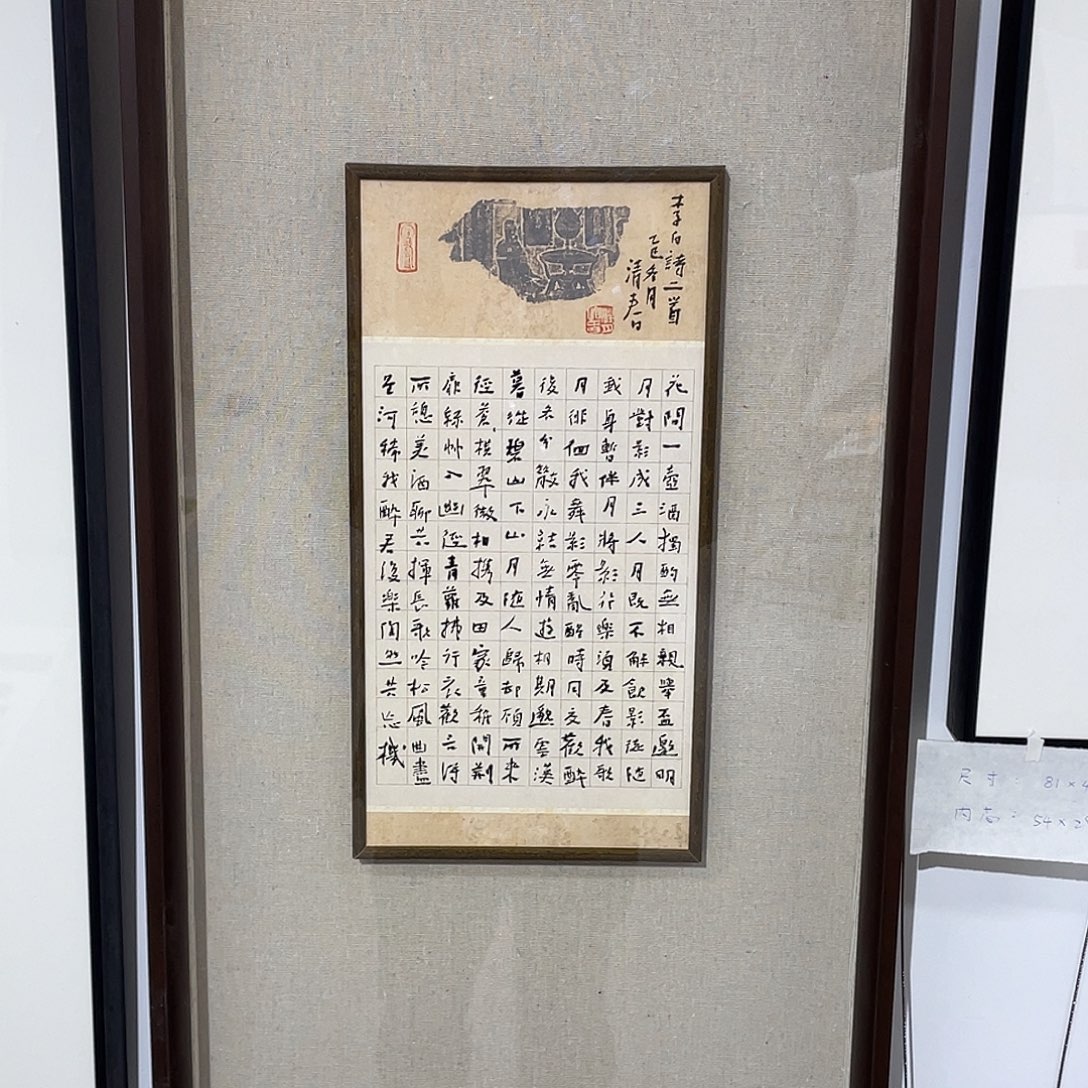 李白詩二首
乙巳冬月
花間一壺酒獨酌無相親舉盃邀明
月對影成三人月既不解飲影徒隨
我身暫伴月將影行樂須及春我歌
月徘徊我舞影零亂醒時同交歡醉
後各分散永結無情遊相期邈雲漢
暮從碧山下山月隨人歸却顧所來
徑蒼、橫翠微相攜及田家童稚開荊
扉綠竹入幽徑青蘿拂行衣歡言得
所憩美酒聊共揮長歌吟松風曲盡
星河稀我醉君復樂陶然共忘機
尺寸：81×4
内芯：54×29